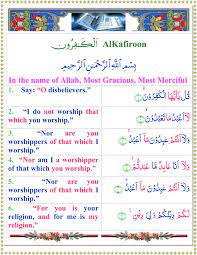 الكٰفِرُون AlKafiroon
بِسْمِ اللهِ الرَّحْمٰنِ الرَّحِيْمِ
In the name of Allah, Most Gracious, Most Merciful
1. Say: "O disbelievers."
قُلْ يٰٓأَيُّهَا الْكٰفِرُوْنَ
2. "I do not worship that which you worship."
لَآ أَعْبُدُ مَا تَعْبُدُوْنَ
3. "Nor are you worshippers of that which I worship."
وَلَآ أَنْتُمْ عٰبِدُوْنَ مَآ أَعْبُدُ
4. "Nor am I a worshipper of that which you worship."
وَلَآ أَنَا عَابِدٌ مَّا عَبَدْتُّمْ
5. "Nor are you worshippers of that which I worship."
وَلَآ أَنْتُمْ عٰبِدُوْنَ مَآ أَعْبُدُ
6. "For you is your religion, and for me is my religion."
لَكُمْ دِيْنُكُمْ وَلِيَ دِيْنِ